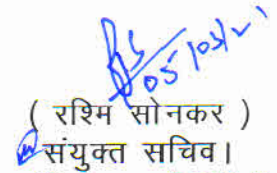 05/03/21
( रश्मि सोनकर )
संयुक्त सचिव।